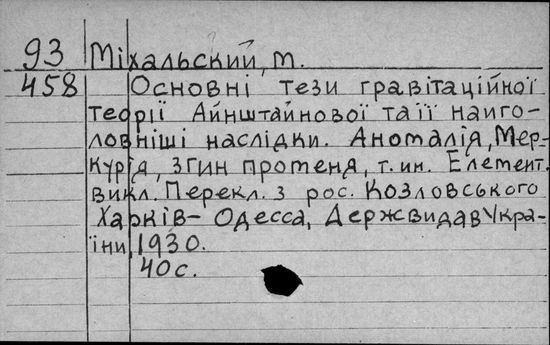 93 Міхальский, М.
458 Основні тези гравітаційної
теорії Айнштайнової та її найго-
ловніші наслідки. Аномалія, Мер-
курія, згин протеня, т.ин. Елемент.
викл. Перекл. з рос. Козловського
Харків- Одесса, Держвидав Укра-
їни, 1930.
40 с.